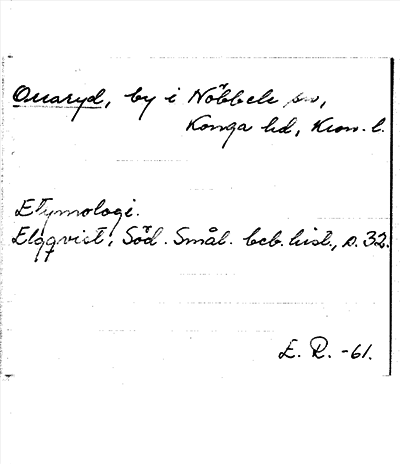 Onaryd, by i Nöbbele sn,
Konga hd, Kron. l.
Etymologi.
Elgqvist, Söd. Smål. beb. hist., s. 32.
E. R. -61.